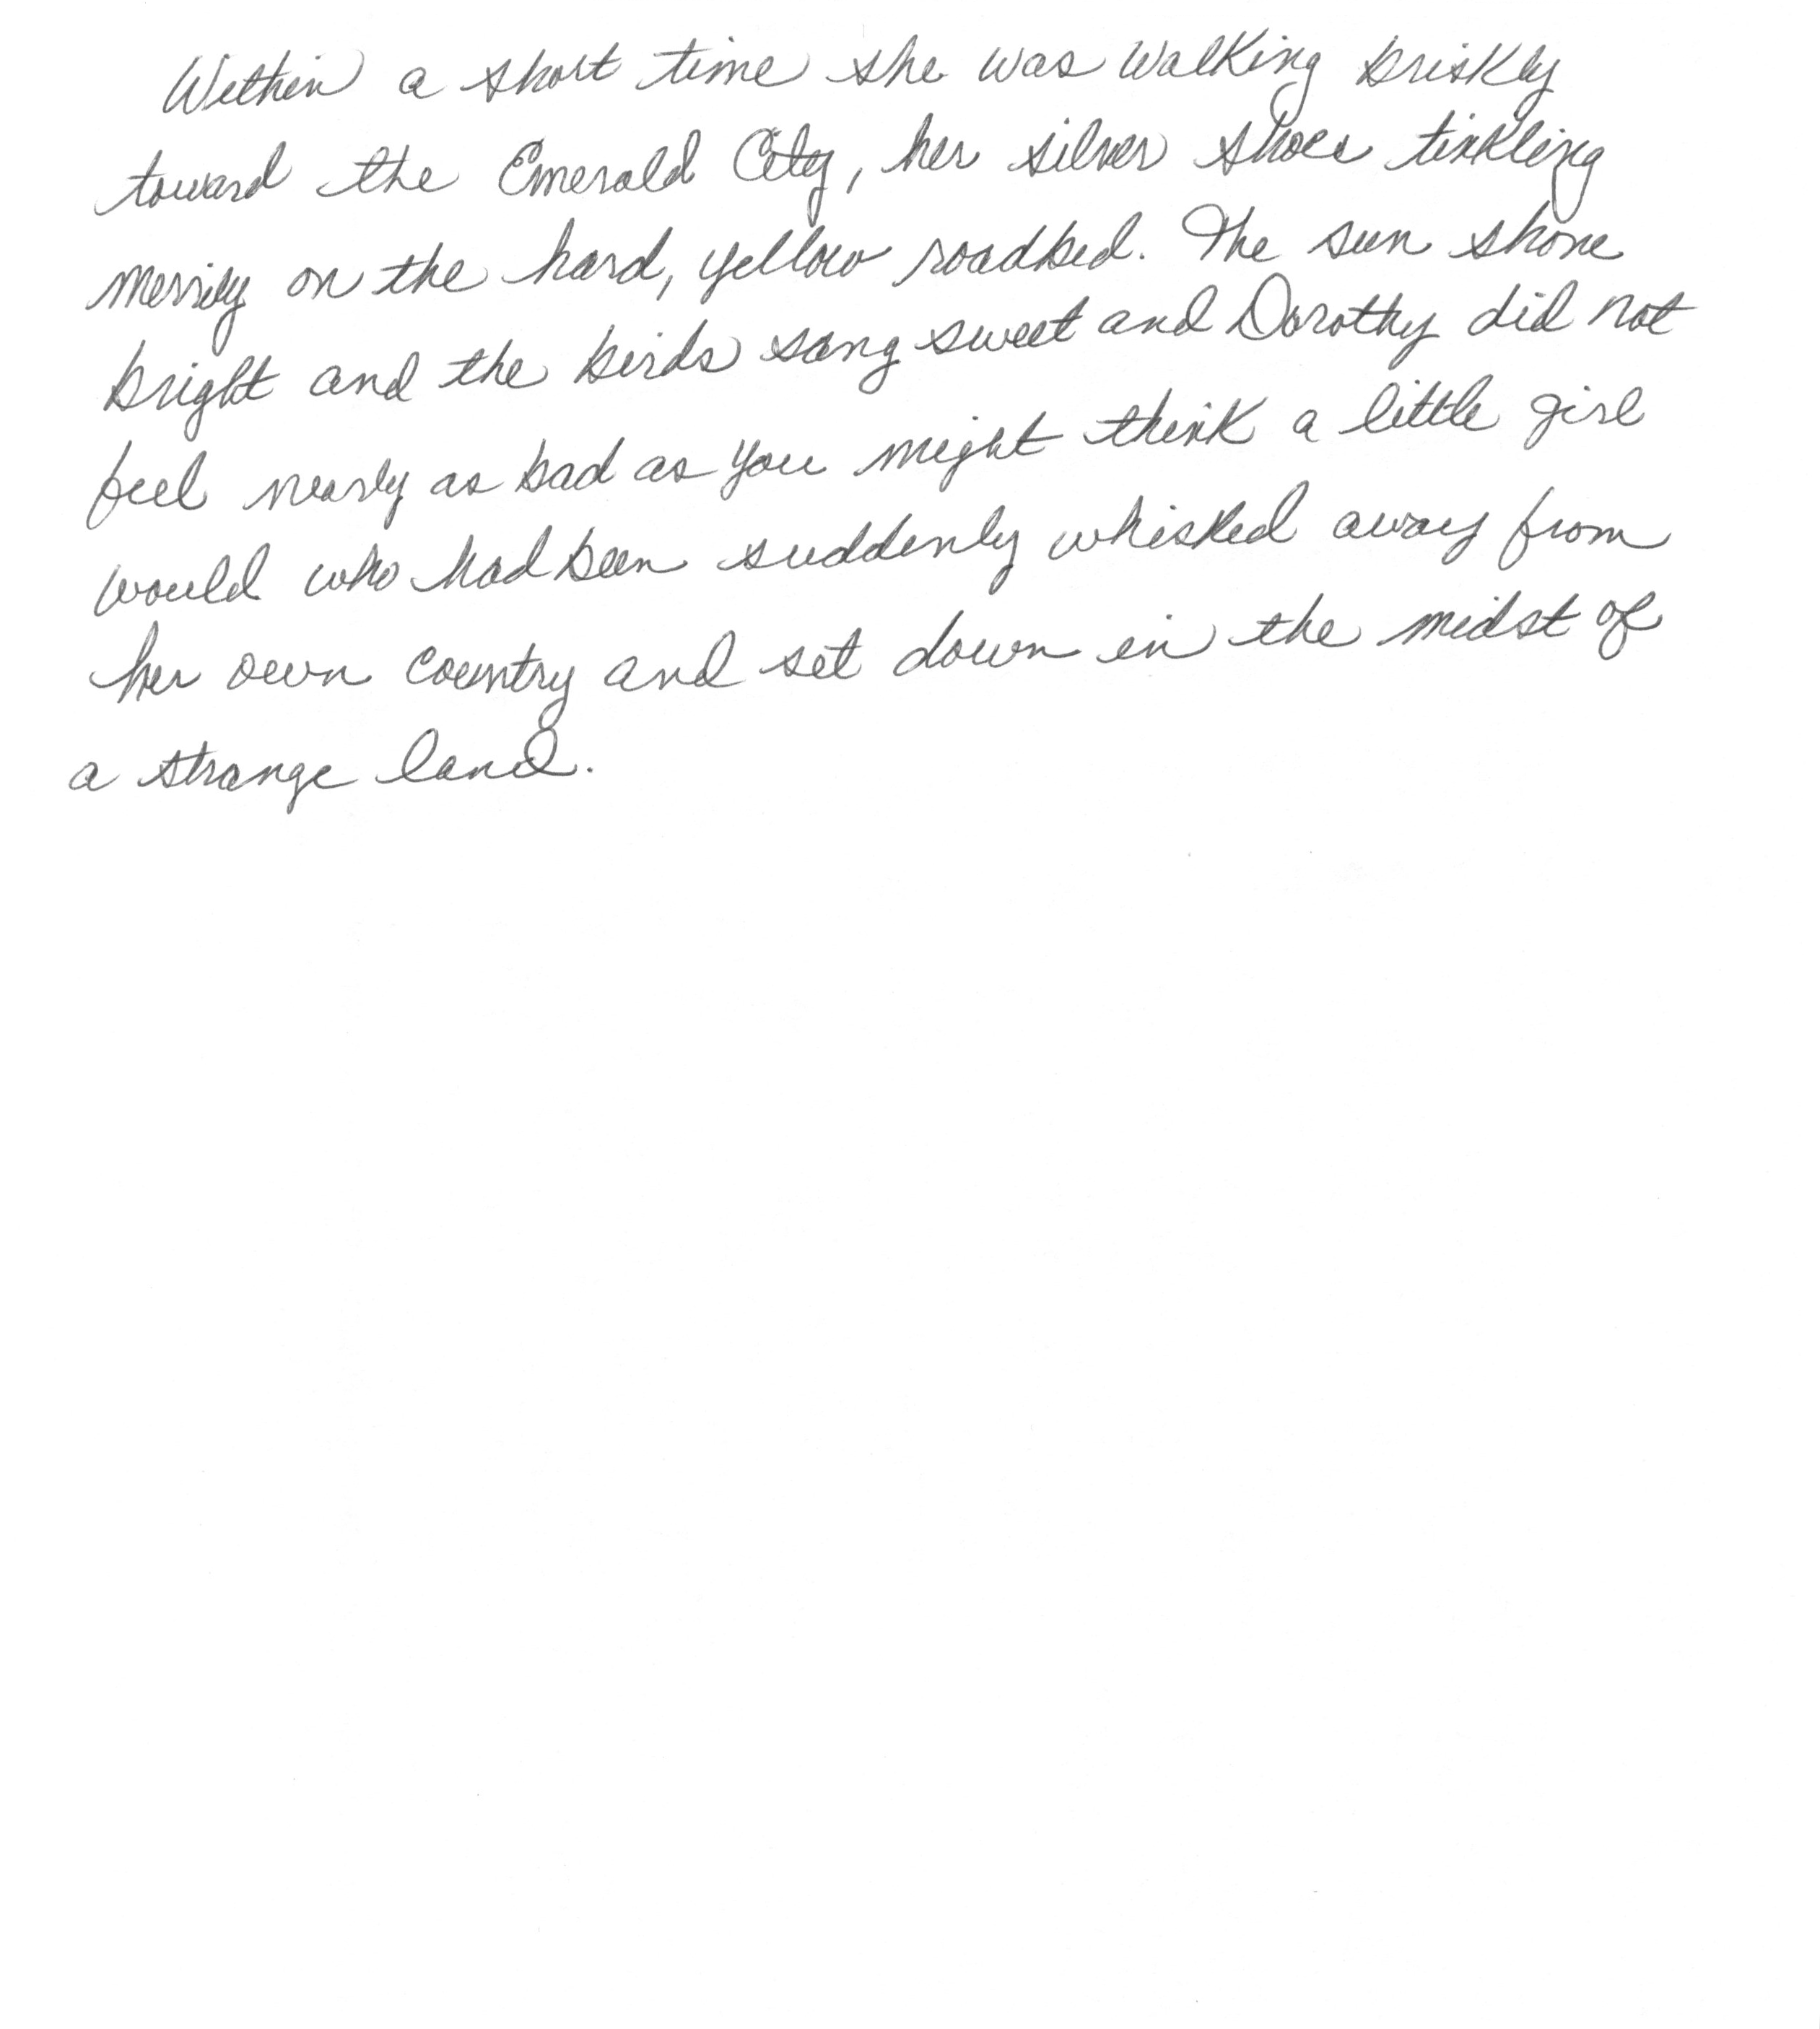 Within a short time she was walking briskly
toward the Emerald City, her silver shoes tinkling
merrily on the hard, yellow roadbed. The sun shone
bright and the birds sang sweet and Dorothy did not
feel nearly as bad as you might think a little girl
would who had been suddenly whisked away from
her own country and set down in the midst of
a strange land.